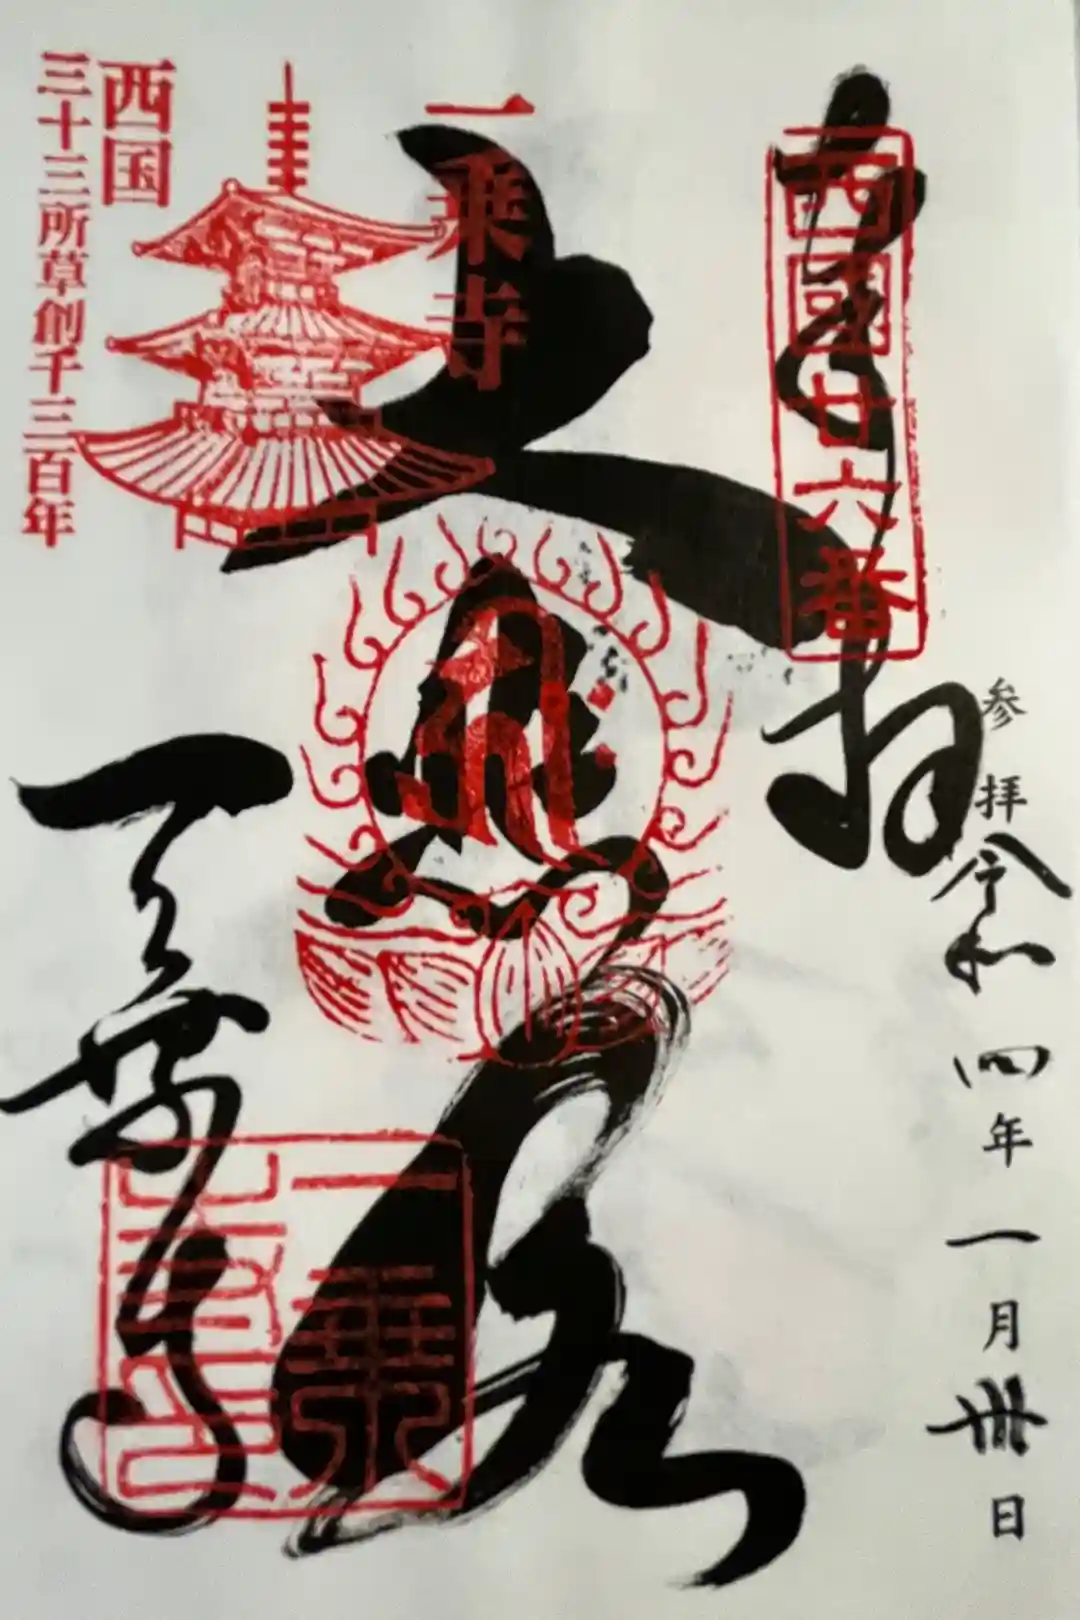 奉拝
西國廿六番
参拝 令和四年一月卅日
大悲閣
一乗寺
西国
三十三所草創千三百年
一乗寺